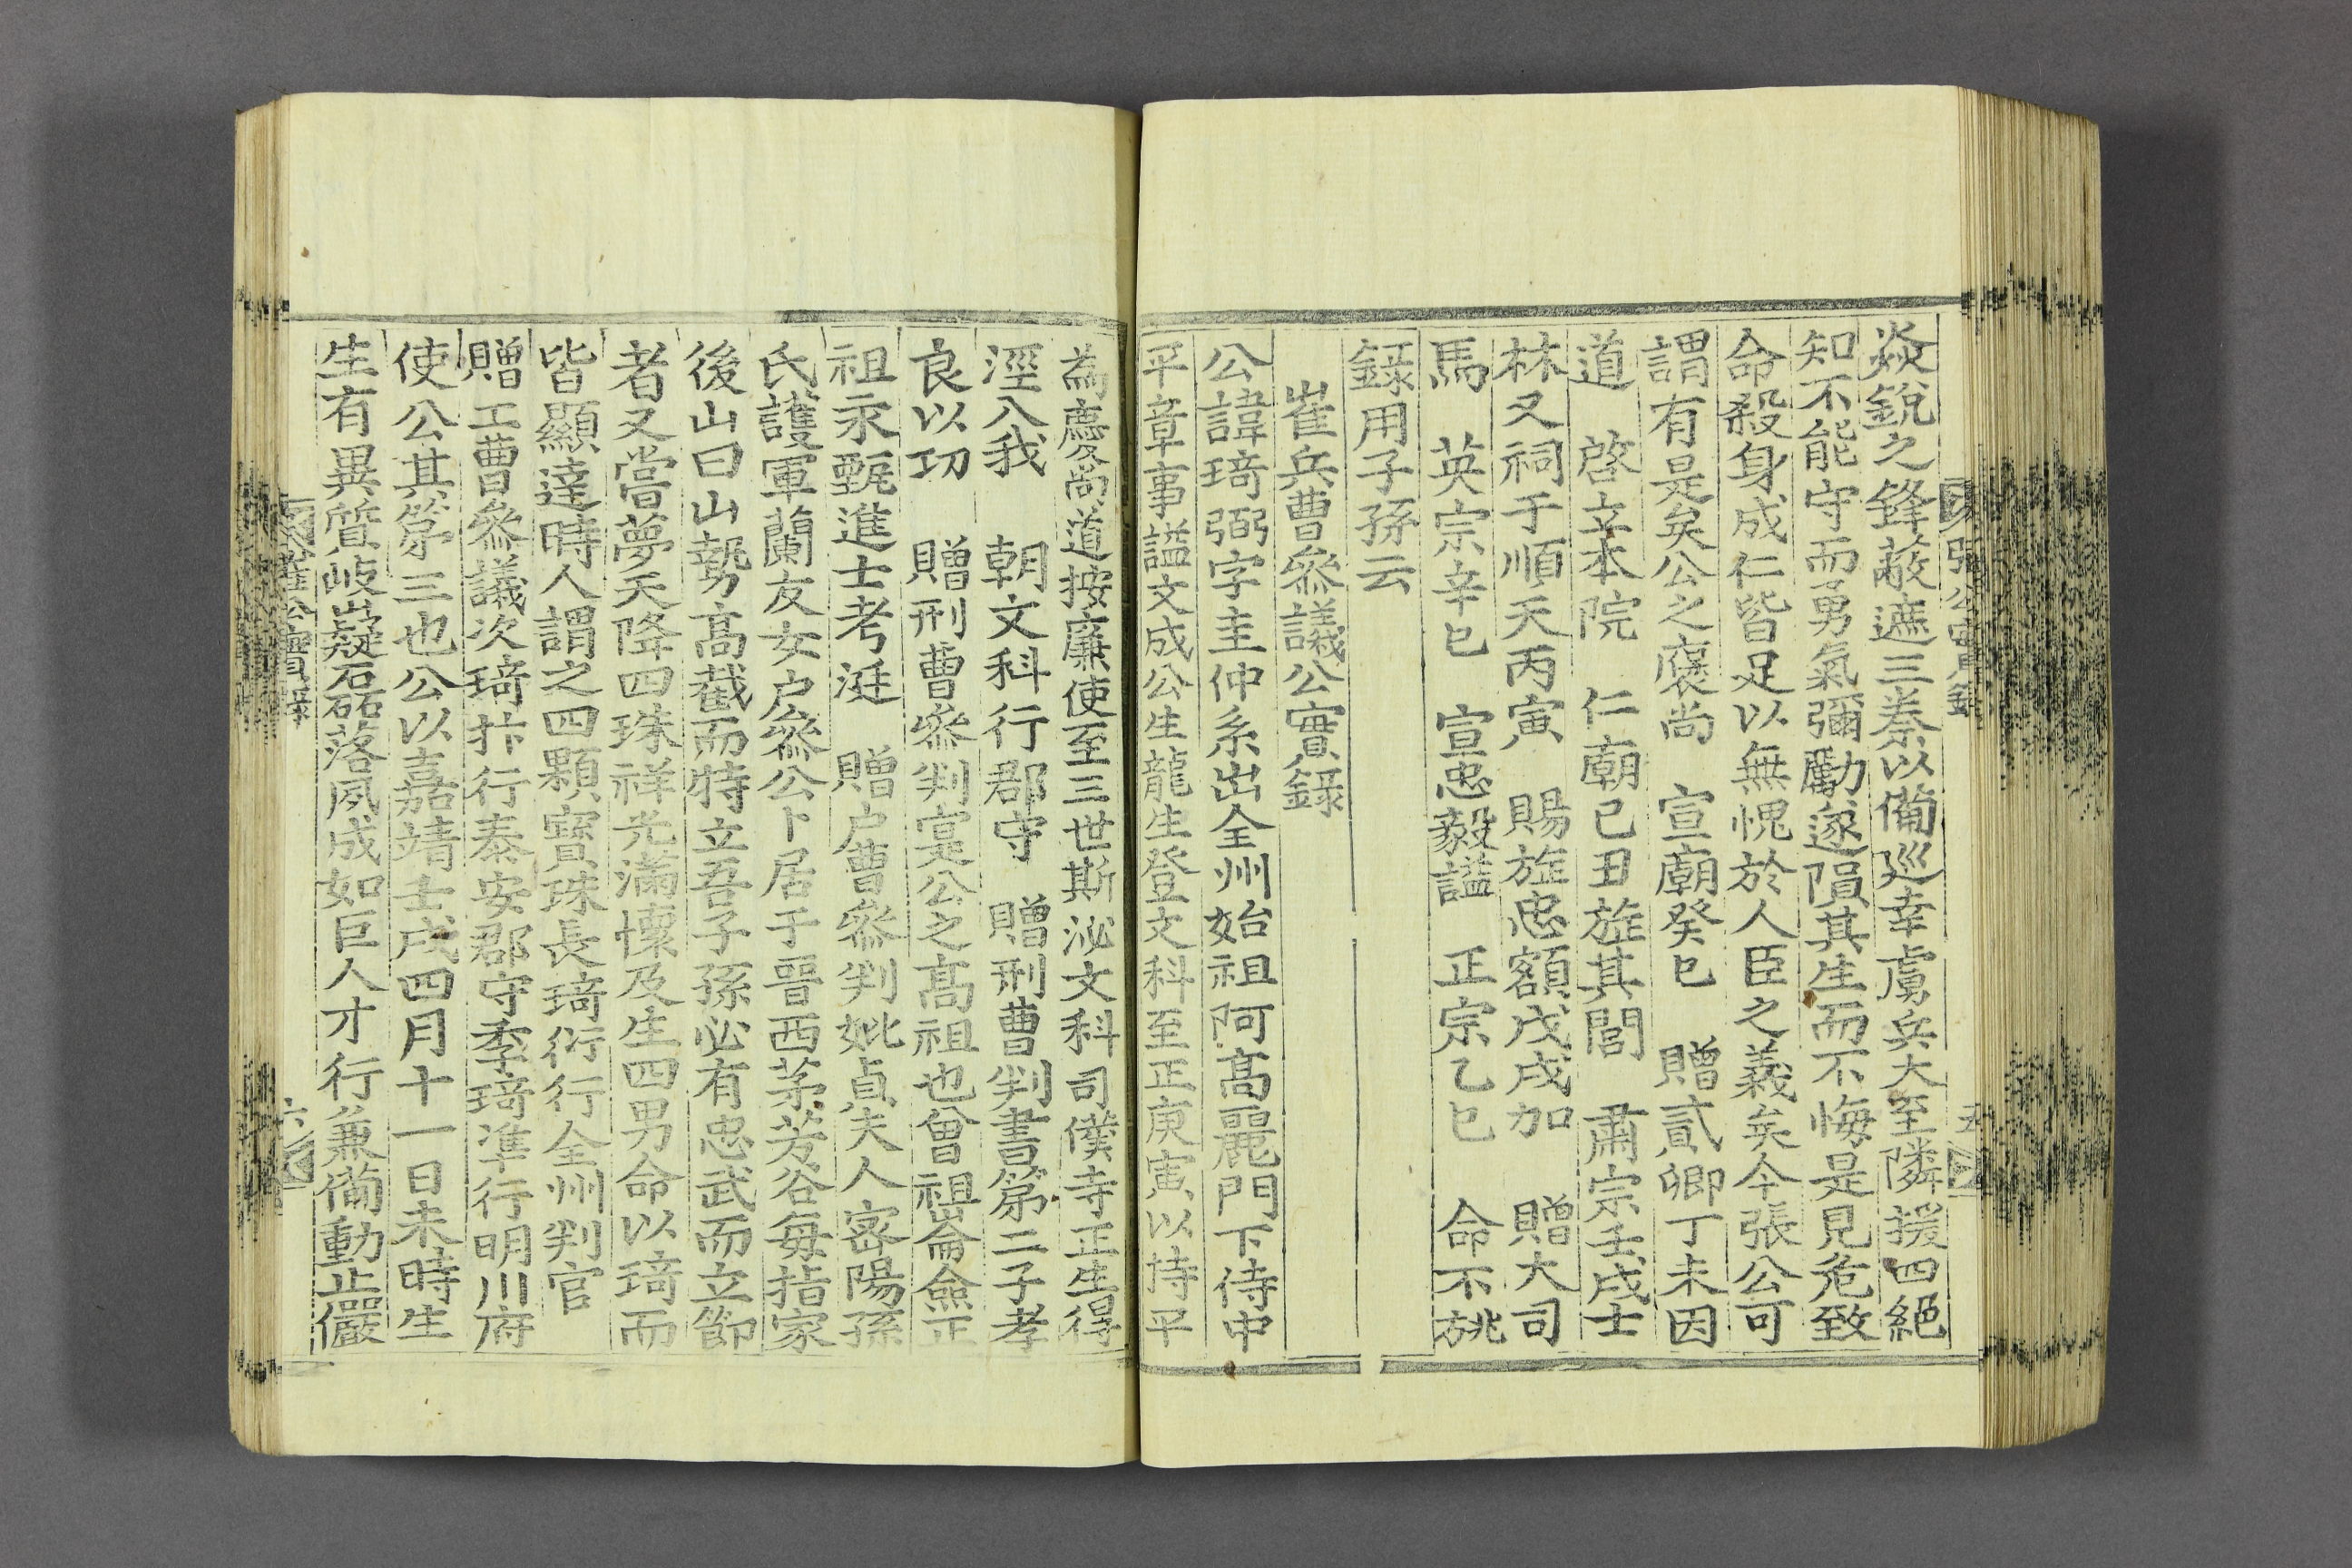 焱銳之鋒蔽遮三秦以備廵幸虜兵大至隣援四絕
知不能守而勇氣彌勵遂隕其生而不悔是見危致
命殺身成仁皆足以無愧於人臣之義矣今張公可
謂有是矣公之褒尚 宣廟癸巳 贈貳卿丁未因
道 啓立本院 仁廟己丑旌其閭 肅宗壬戌士
林又祠于順天丙寅 賜旌忠額戊戌加 贈大司
馬 英宗辛巳 宣忠毅謚 正宗乙巳 命不祧
錄用子孫云
崔兵曹叅議公實錄
公諱琦弼字圭仲系出全州始祖阿髙麗門下侍中
平章事謚文成公生龍生登文科至正庚寅以持平
為慶尚道按廉使至三世斯泌文科司僕寺正生得
涇入我 朝文科行郡守 贈刑曹判書第二子孝
良以功 贈刑曹叅判寔公之髙祖也曾祖崙僉正
祖永甄進士考涏 贈户曹叅判妣貞夫人密陽孫
氏護軍蘭友女户叅公卜居于晉西茅芳谷每指家
後山曰山勢高截而特立吾子孫必有忠武而立節
者又嘗夢天降四珠祥光滿懷及生四男命以琦而
皆顯達時人謂之四顆寶珠長琦衍行全州判官
贈工曹叅議次琦抃行泰安郡守季琦準行明川府
使公其第三也公以嘉靖壬戌四月十一日未時生
生有異質岐嶷石磊落夙成如巨人才行兼備動止儼
張公實錄 五
崔公實錄 六